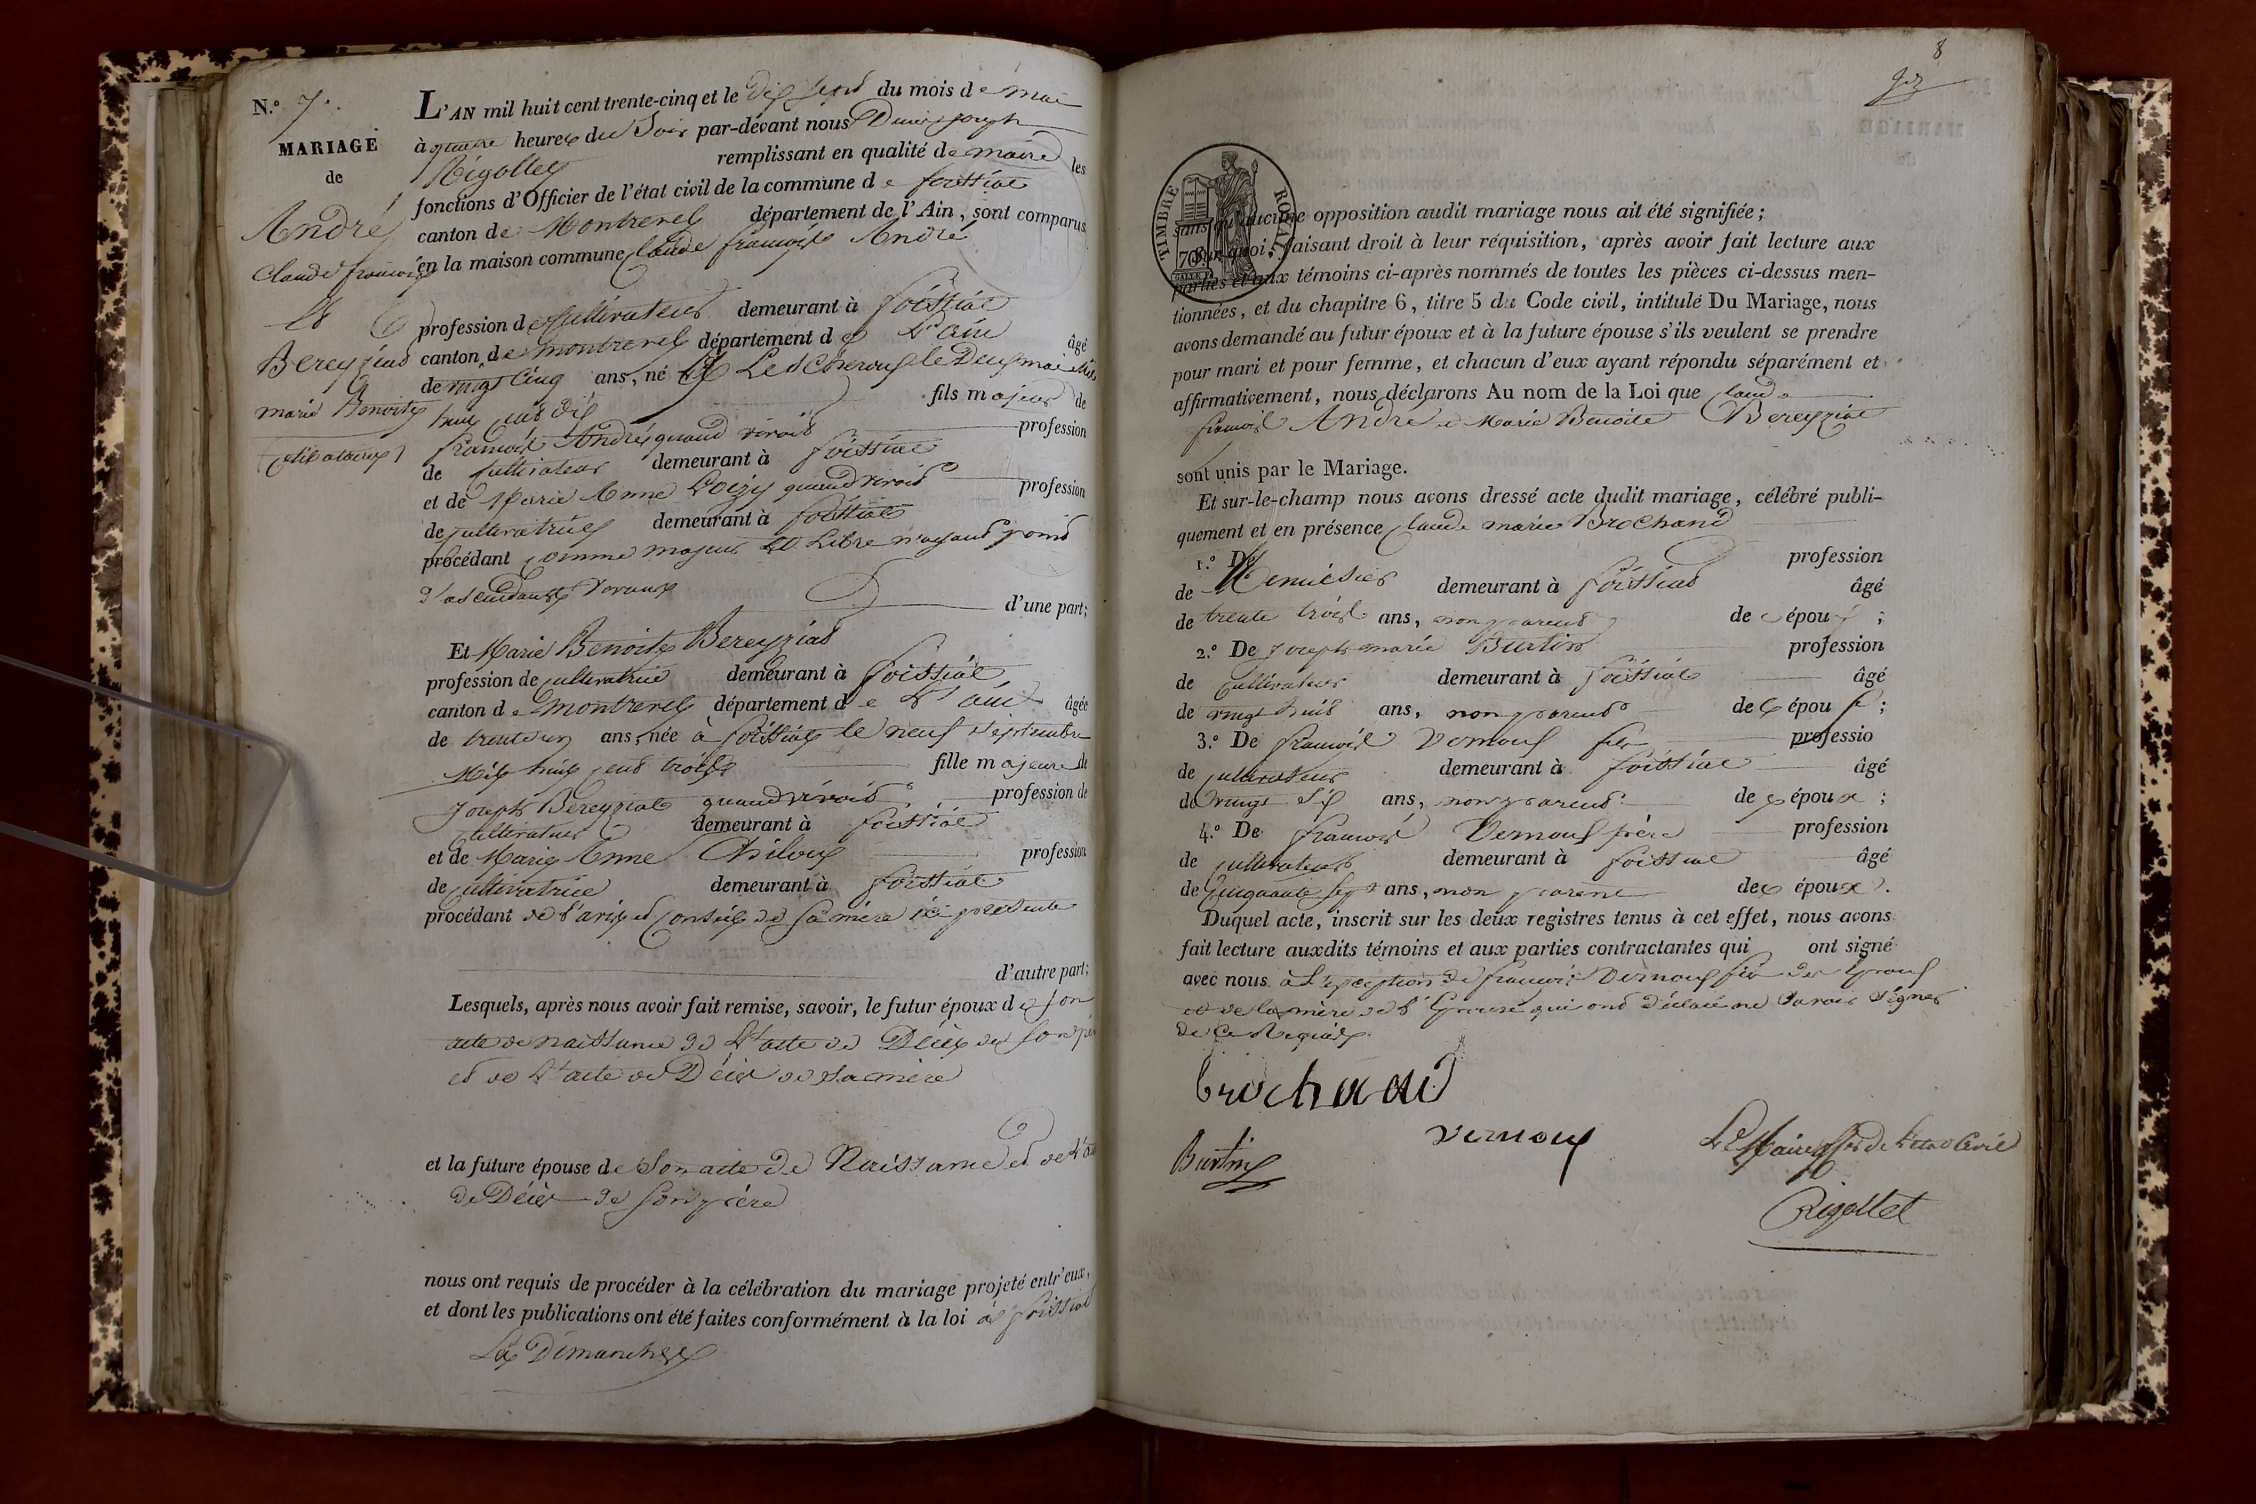 N.º 7.
MARIAGE
de
André
Claude françois
et
Bereyziat
marie Benoite
(célibataires)
L'AN mil huit cent trente-cinq et le dix sept du mois de mai
à quatre heures du Soir par-devant nous Denis joseph
Rigollet remplissant en qualité de maire les
fonctions d'Officier de l'état civil de la commune de foissiat
canton de Montrevel département de l'Ain, sont comparus
en la maison commune Claude françois André
profession de Cultivateur demeurant à foissiat
canton de montrevel département de L'ain âgé
de vingt Cinq ans, né à Lescheroux le Deux mai mil
huit cent dix fils majeur de
françois André quand vivoit profession
de cultivateur demeurant à foissiat
et de Marie Anne Loizy quand vivoit profession
de cultivatrice demeurant à foissiat
procédant comme majeur et Libre n'ayant point
d'ascendants vivants
d'une part;
Et Marie Benoite Bereyziat
profession de cultivatrice demeurant à foissiat
canton de montrevel département de L'ain âgée
de trente un ans, née à foissiat le neuf septembre
Mil huit cent trois fille majeure de
joseph Bereyziat quand vivoit profession de
cultivateur demeurant à foissiat
et de Marie Anne Chiloux profession
de cultivatrice demeurant à foissiat
procédant de l'avis et Conseil de sa mère ici présente
d'autre part;
Lesquels, après nous avoir fait remise, savoir, le futur époux de son
acte de naissance de L'acte de Décès de son père
et de L'acte de Décès de sa mère
et la future épouse de Son acte de Naissance et de L'acte
de Décès de son père
nous ont requis de procéder à la célébration du mariage projeté entr'eux,
et dont les publications ont été faites conformément à la loi à foissiat
Les Dimanches
8
TIMBRE ROYAL
70
sans qu'aucune opposition audit mariage nous ait été signifiée;
Sur quoi, faisant droit à leur réquisition, après avoir fait lecture aux
parties et aux témoins ci-après nommés de toutes les pièces ci-dessus men-
tionnées, et du chapitre 6, titre 5 du Code civil, intitulé Du Mariage, nous
avons demandé au futur époux et à la future épouse s'ils veulent se prendre
pour mari et pour femme, et chacun d'eux ayant répondu séparément et
affirmativement, nous déclarons Au nom de la Loi que Claude
françois André et Marie Benoite Bereyziat
sont unis par le Mariage.
Et sur-le-champ nous avons dressé acte dudit mariage, célébré publi-
quement et en présence Claude marie Brochand
1.º De profession
de Menuisier demeurant à foissiat âgé
de trente trois ans, non parent de époux;
2.º De joseph marie Burtin profession
de cultivateur demeurant à foissiat âgé
de vingt huit ans, non parent de époux;
3.º De françois Vernoux fils professio
de cultivateur demeurant à foissiat âgé
de vingt six ans, non parent de époux;
4.º De françois Vernoux père profession
de cultivateur demeurant à foissiat âgé
de Cinquante sept ans, non parent des époux.
Duquel acte, inscrit sur les deux registres tenus à cet effet, nous avons
fait lecture auxdits témoins et aux parties contractantes qui ont signé
avec nous à L'exception de françois Vernoux père des Epoux
et de la mère de l'Epouse qui ont déclaré ne savoir signer
de Ce Requis
brochand
vernoux
Burtin
Le Maire officier de L'etat Civil
Rigollet